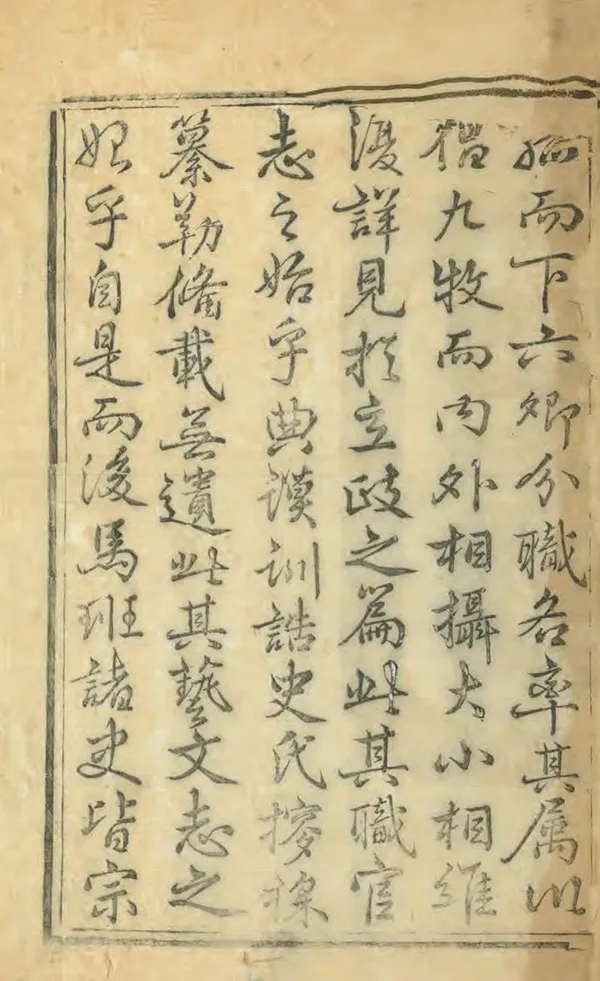 孤而下六卿分職各率其属以
倡九牧而内外相攝大小相維
復詳見扵立政之篇此其職官
志之始乎典謨訓誥史氏採
纂勒俻載無遺此其藝文志之
始乎自是而後馬班諸史皆宗